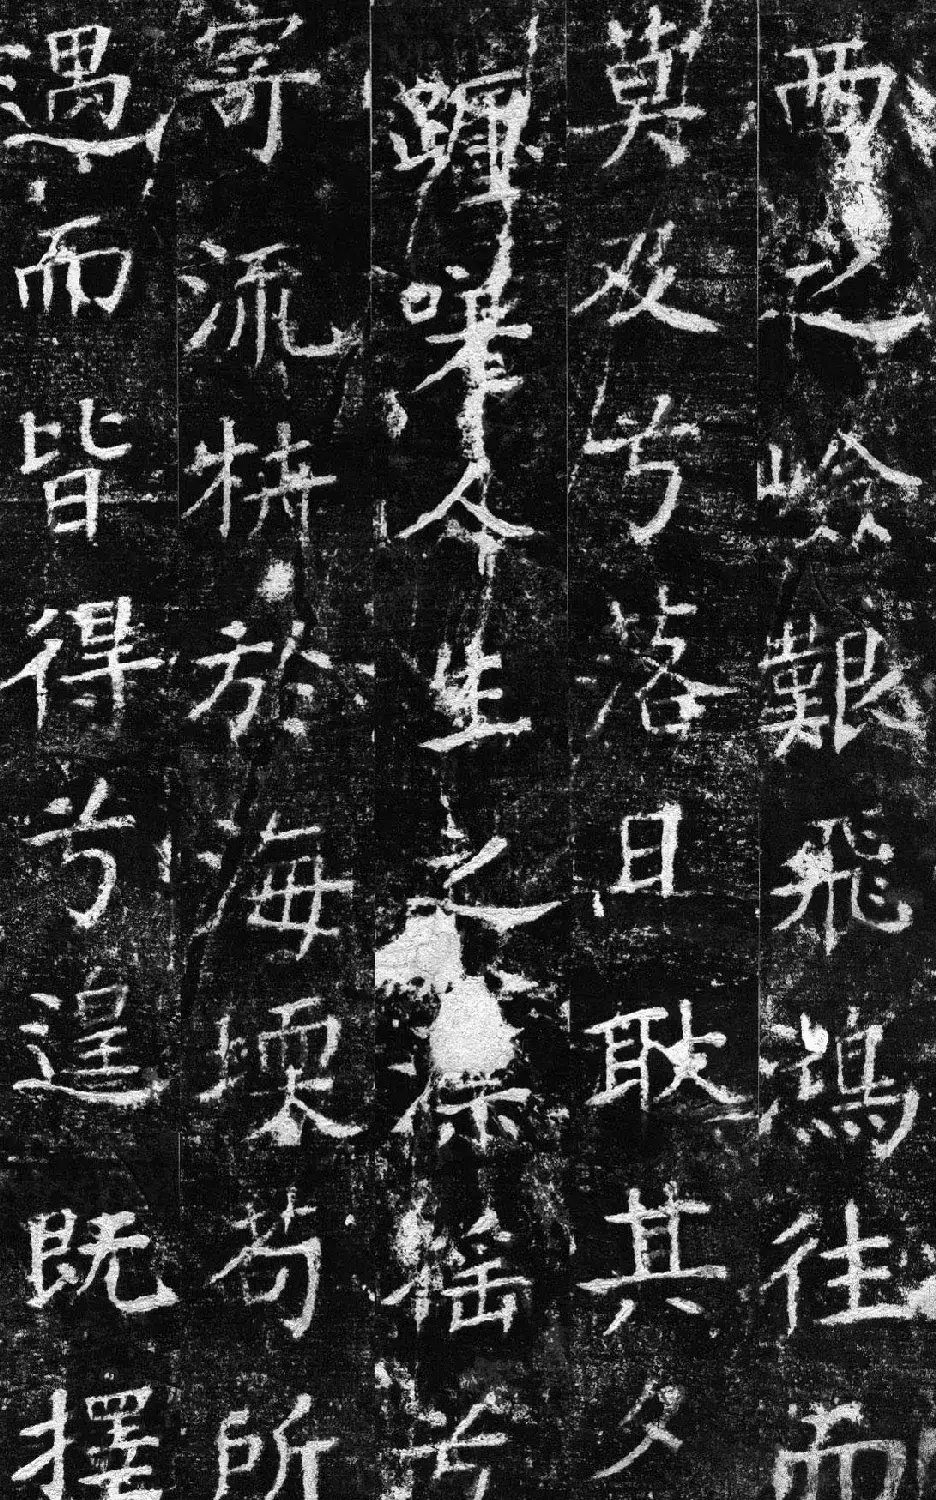 之嶮艱飛鴻往而
莫及兮落日耿其夕
躔嗟人生之漂搖兮
寄流枿於海壖苟所
遇而皆得兮遑既擇